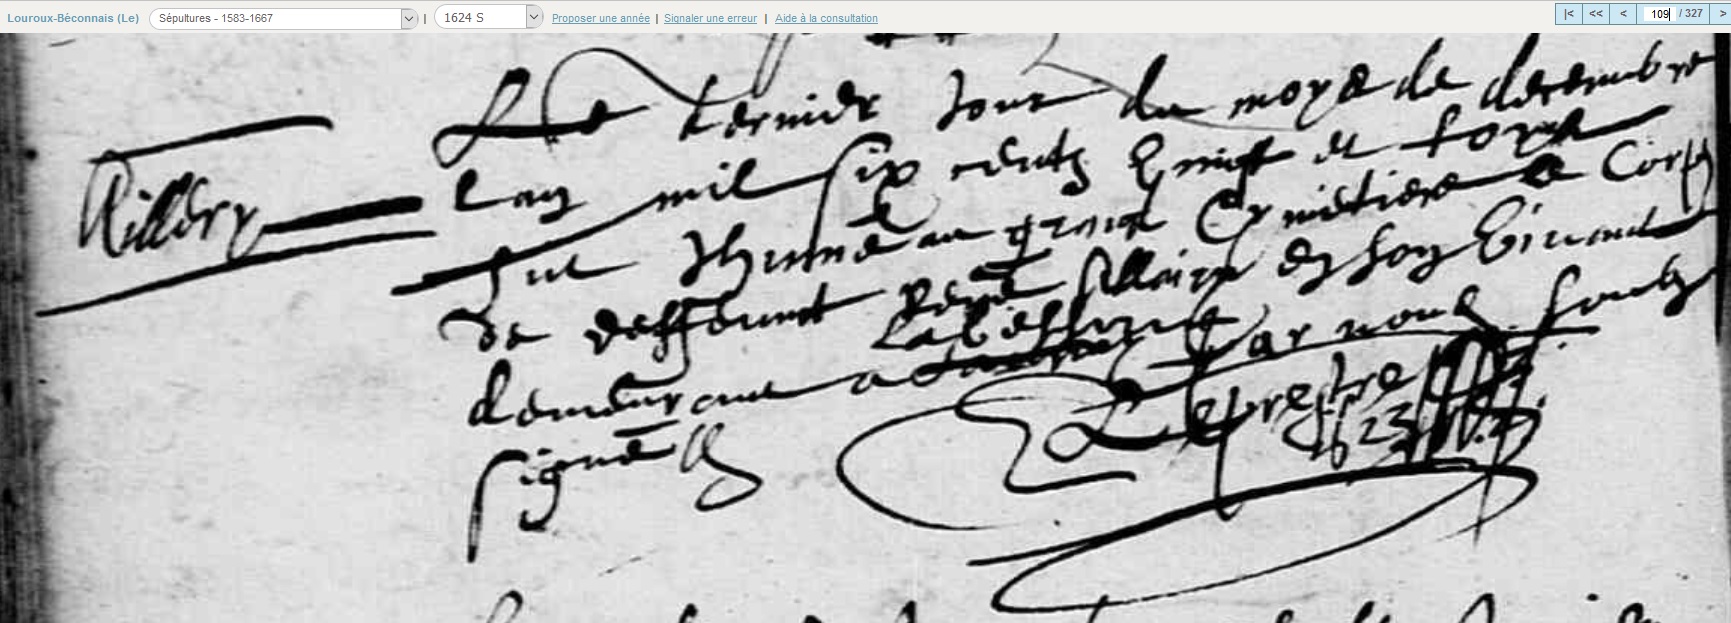 Louroux-Béconnais (Le) Sépultures - 1583-1667 | 1624 S Proposer une année | Signaler une erreur | Aide à la consultation |< << < 109 / 327 >
Le dernier Jour du moys de decembre
Lan mil six centz vingt et troys
fut Ihumé au grand Cymetiere le Corps
de deffunct René en son vivant
demeurant a par nous soubz
signé Leprestre
1623